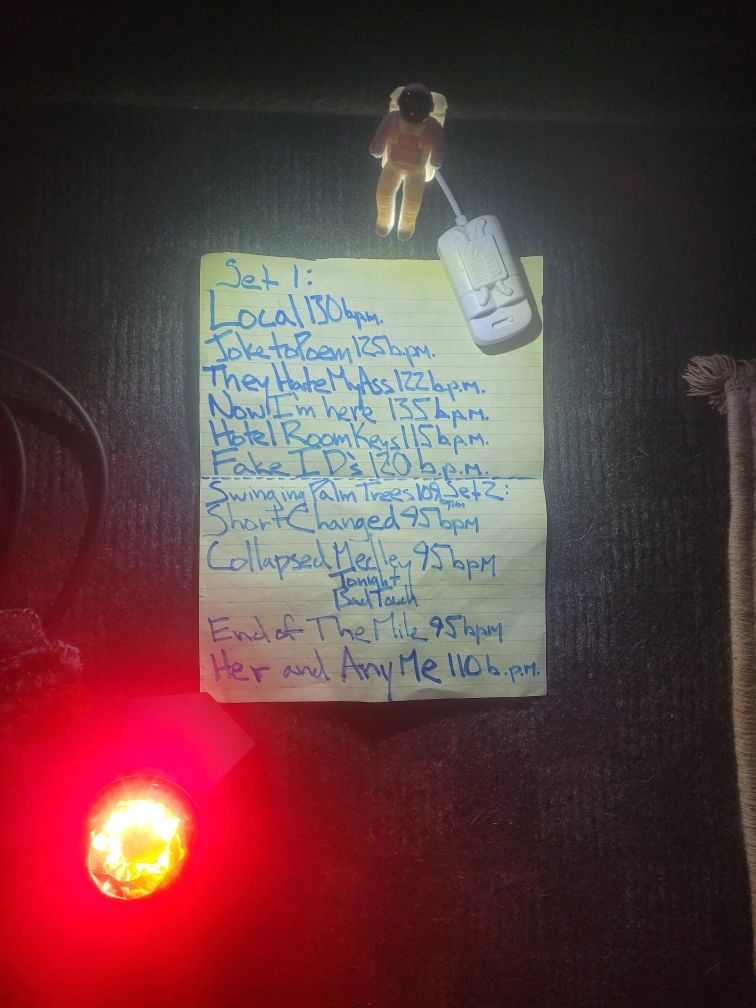 Set 1:
Local 130 bpm.
Joke to Poem 125 b.p.m.
They Hate My Ass 122 b.p.m.
Now I'm here 135 b.p.m.
Hotel Room Keys 115 b.p.m.
Fake ID's 120 b.p.m.
Swinging Palm Trees 109 bpm Set 2:
Short Changed 95 bpm
Collapsed Medley 95 bpm
Tonight
Bad Touch
End of The Mile 95 bpm
Her and Any Me 110 b.p.m.